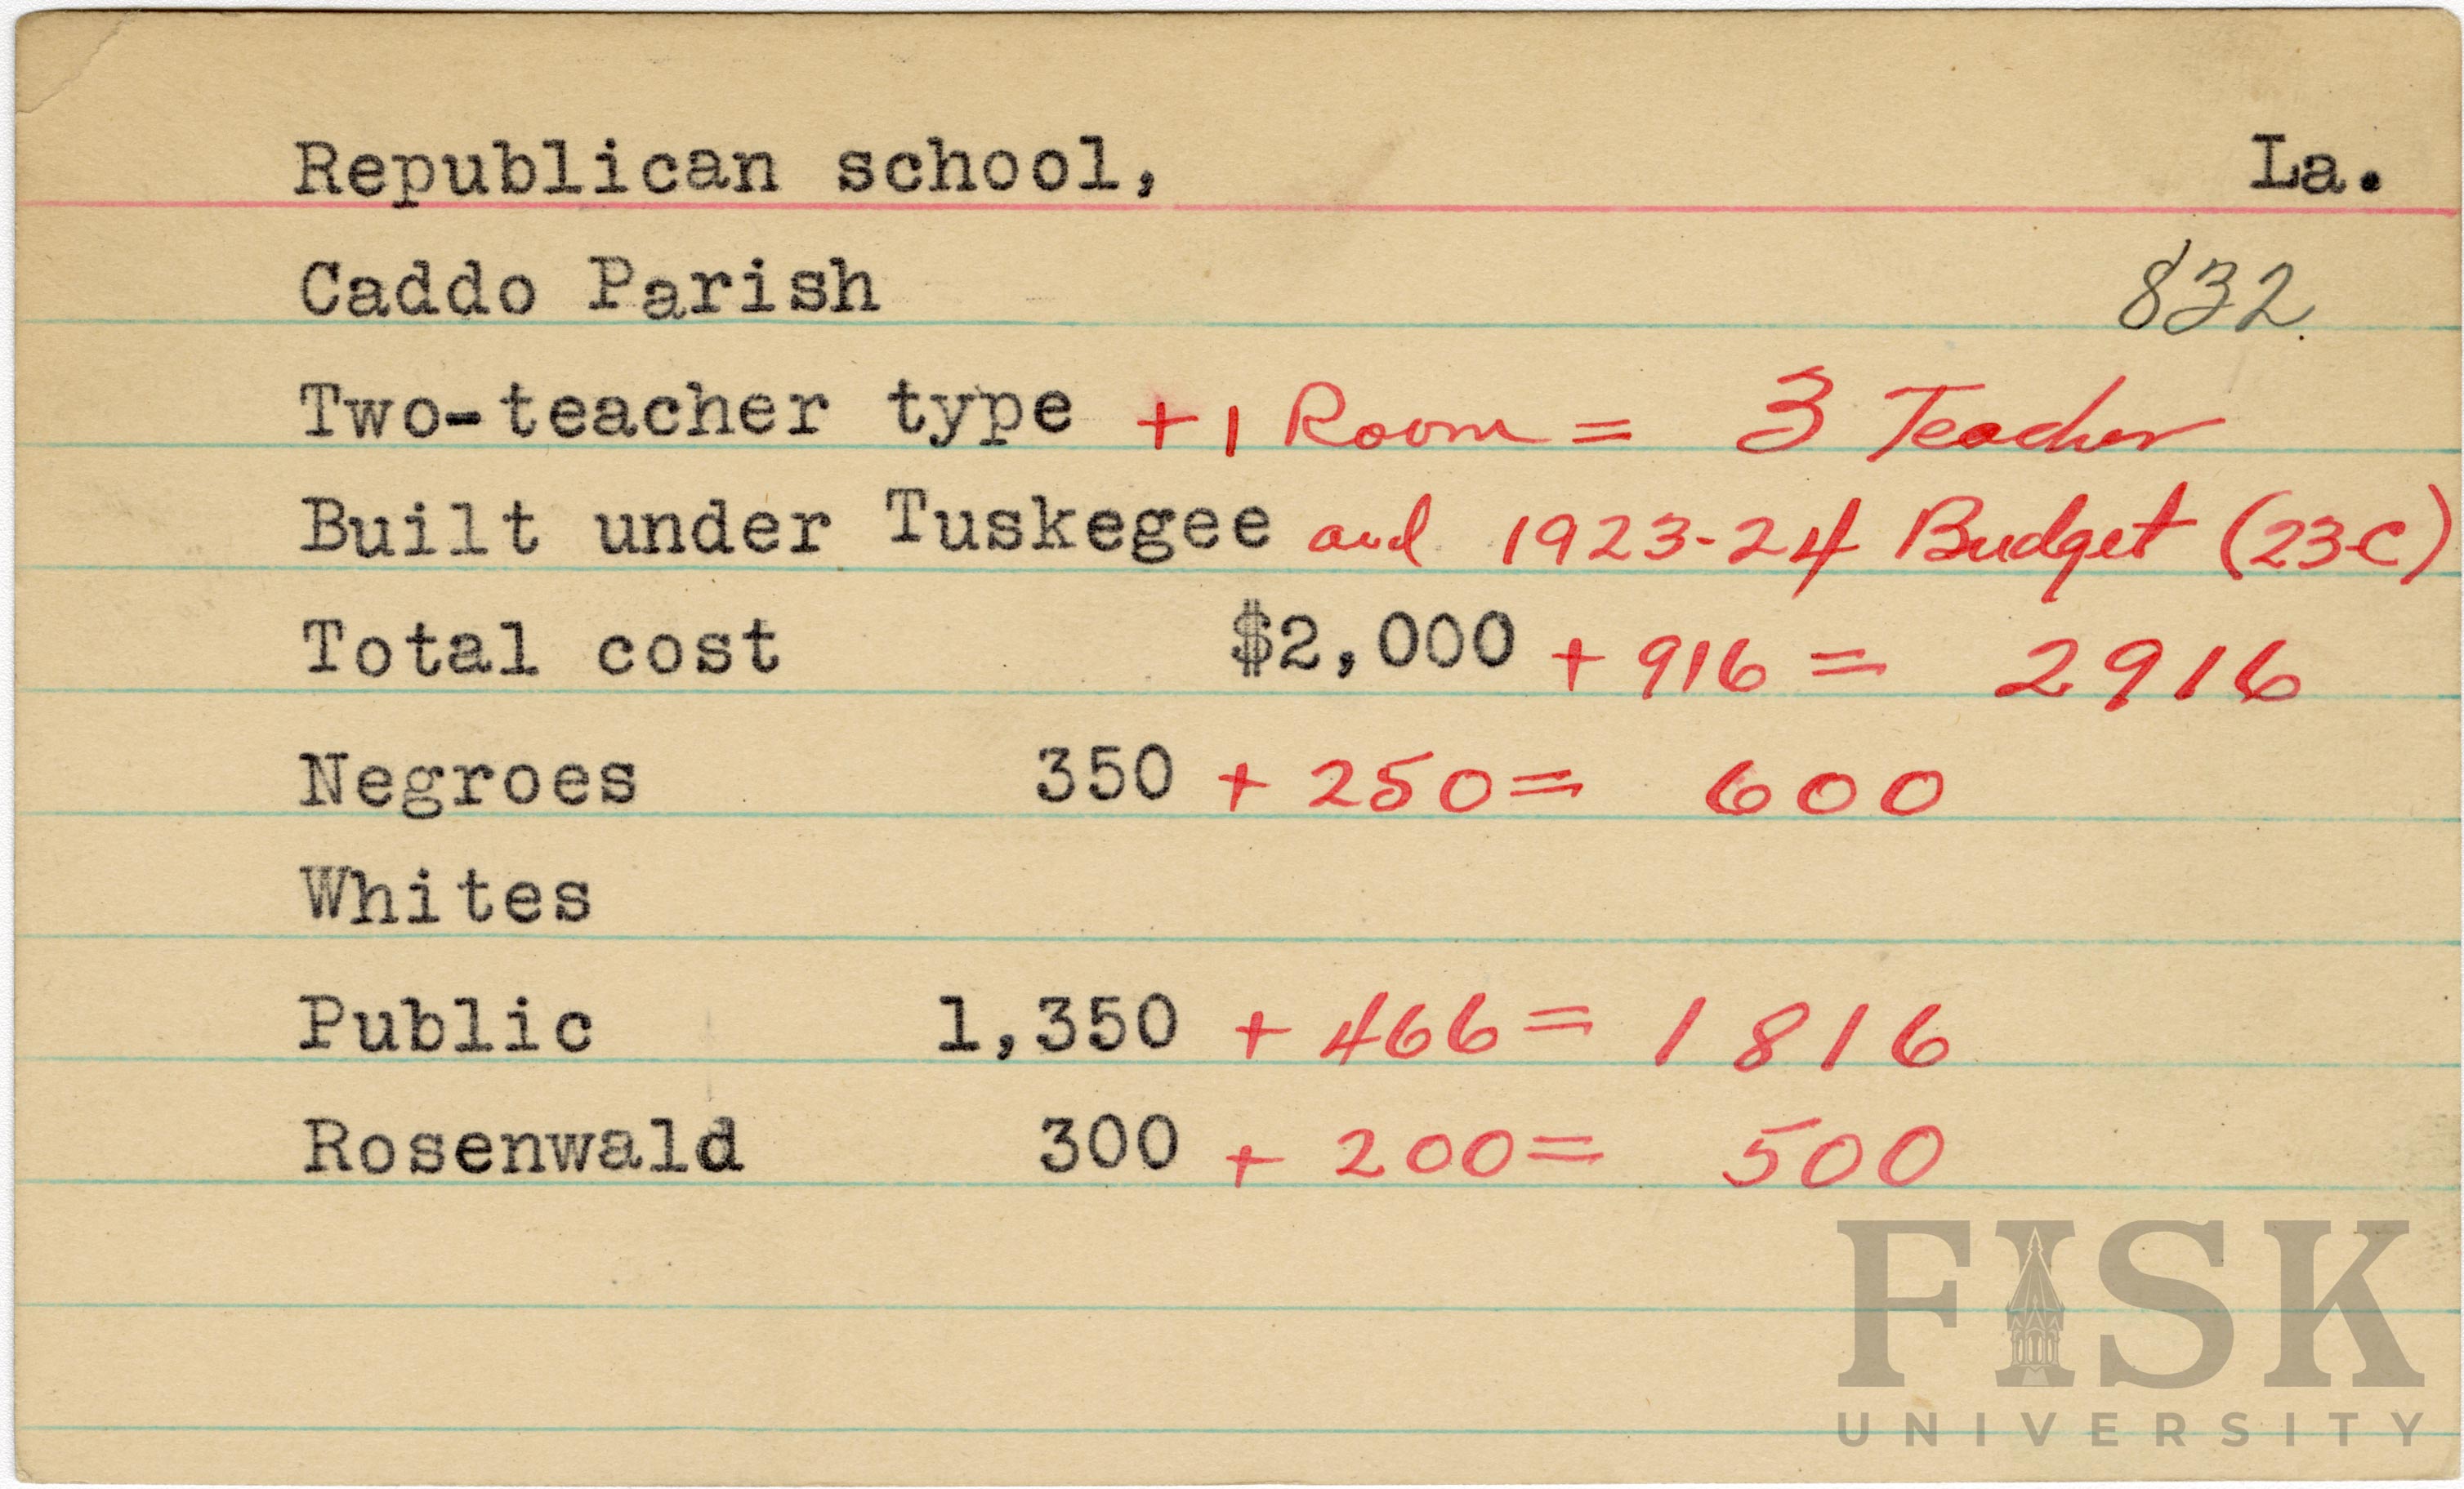 Republican school, La.
Caddo Parish 832
Two-teacher type + 1 Room = 3 Teacher
Built under Tuskegee and 1923-24 Budget (23-C)
Total cost $2,000 + 916 = 2916
Negroes 350 + 250 = 600
Whites
Public 1,350 + 466 = 1816
Rosenwald 300 + 200 = 500
FISK
UNIVERSITY